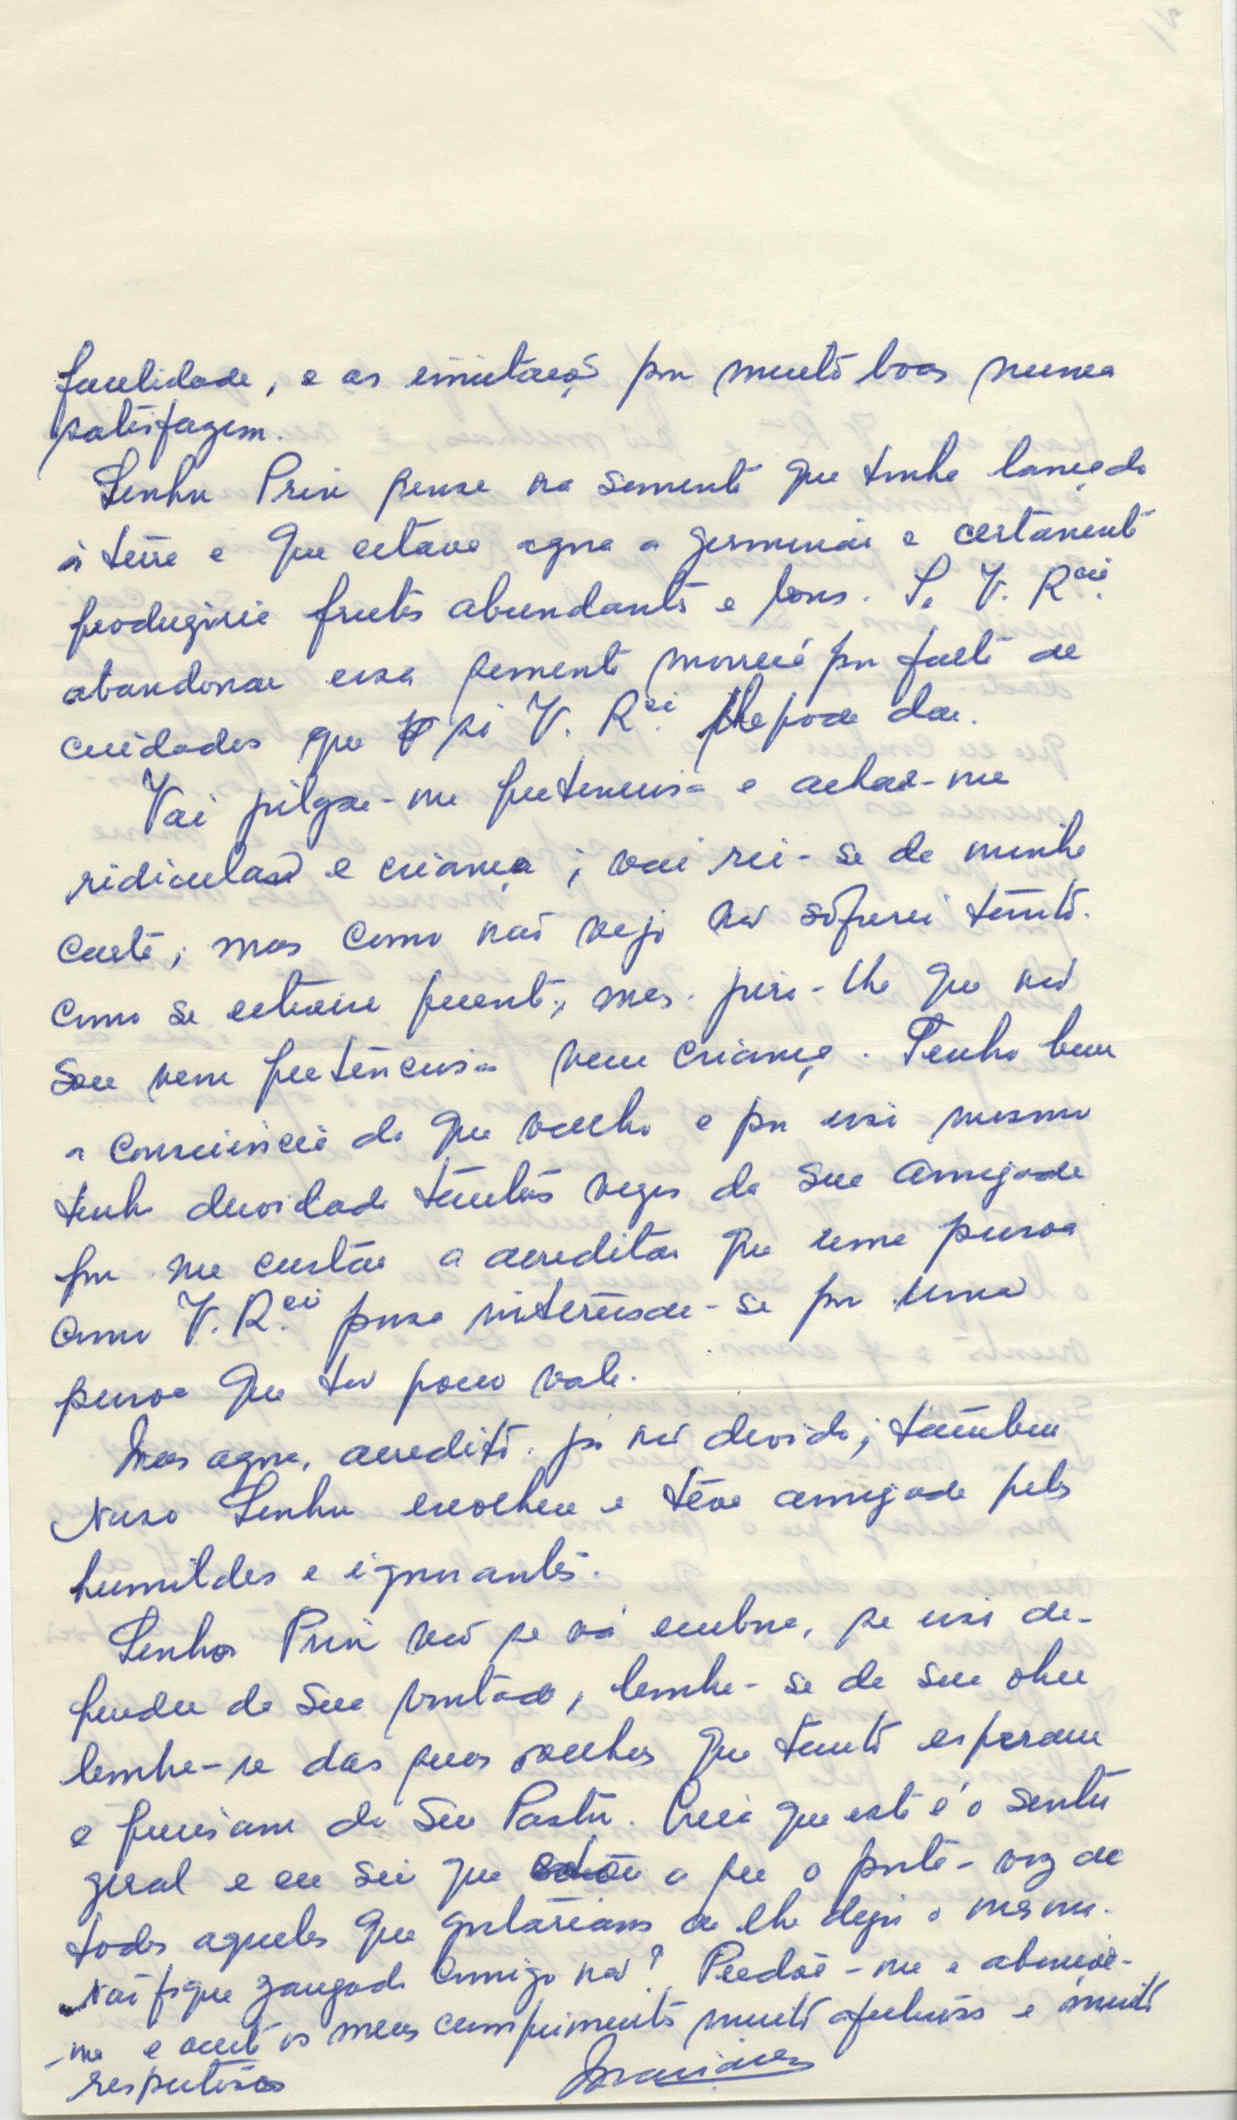 facilidade, e as imitação por muito boas nunca
satisfazem.
Senhor Prior pense na semente que tinha lançado
à terra e que estava agora a germinar e certamente
produziria frutos abundantes e bons. Se V. R.cia
abandonar essa semente morrerá por falta de
cuidados que só V. R.cia lhe pode dar.
Vai julgar-me pretenciosa e achar-me
ridicula e criança; vai rir-se da minha
carta, mas como não vejo não sofrerei tanto.
como se estivesse presente, mas juro-lhe que não
sou nem pretenciosa nem criança. Tenho bem
a consciência do que valho e por isso mesmo
tenho duvidado tantas vezes da sua amizade
por me custar a acreditar que uma pessoa
como V. R.cia possa interessar-se por uma
pessoa que tão pouco vale.
Mas agora, acredito. já não duvido; também
Nosso Senhor escolheu e teve amizade pelos
humildes e ignorantes.
Senhor Prior não se vá embora, se isso de-
pender da sua vontade, lembre-se da sua obra
lembre-se das suas ovelhas que tanto esperam
e precisam do Seu Pastor. Creia que este é o sentir
geral e eu sei que estou a ser o porta-voz de
todos aqueles que gostariam de lhe dizer o mesmo.
Não fique zangado comigo não? Perdoe-me e abençoe-
-me e aceite os meus cumprimentos muito afectuosos e muito
respeitosos